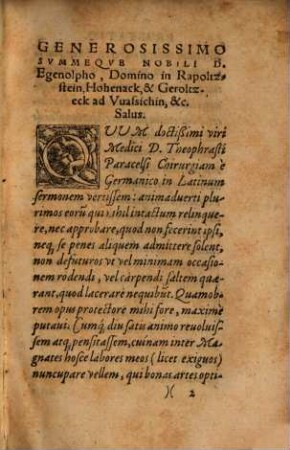 GENEROSISSIMO
SVMMEQVE NOBILI D.
Egenolpho, Domino in Rapoltz-
stein, Hohenack, & Geroltz-
eck ad Vuassichin, &c.
Salus.
QUUM doctißimi viri
Medici D. Theophrasti
Paracelsi Chirurgiam è
Germanico in Latinum
sermonem vertissem: animaduerti plu-
rimos eorũ qui nihil intactum relinque-
re, nec approbare, quod non fecerint ipsi,
neq; se penes aliquem admittere solent,
non defuturos vt vel minimam occasio-
nem rodendi, vel carpendi saltem quæ-
rant, quod lacerare nequibũt. Quamob-
rem opus protectore mihi fore, maximè
putaui. Cumq́; diu satis animo reuoluis-
sem atq; pensitassem, cuinam inter Ma-
gnates hosce labores meos (licet exiguos)
nuncupare vellem, qui bonas artes opti-
)( 2